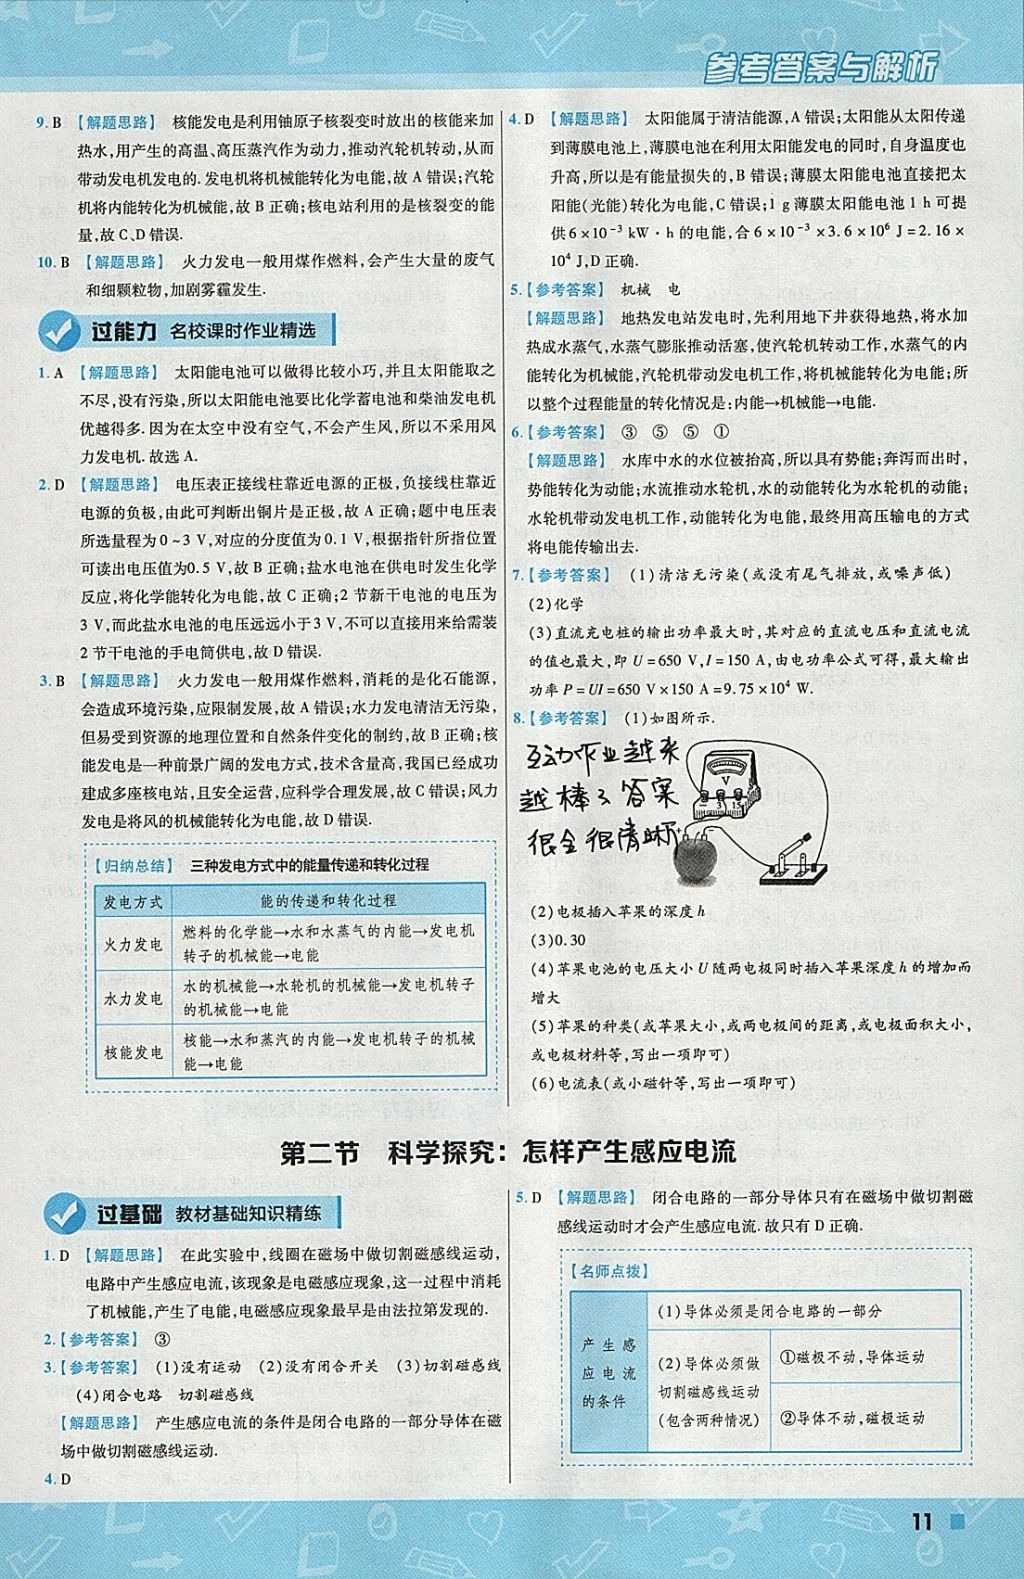 参考答案与解析
9. B 【解题思路】 核能发电是利用铀原子核裂变时放出的核能来加
热水,用产生的高温、高压蒸汽作为动力,推动汽轮机转动,从而
带动发电机发电的.发电机将机械能转化为电能,故 A 错误;汽轮
机将内能转化为机械能,故 B 正确;核电站利用的是核裂变的能
量,故 C、D 错误.
10. B 【解题思路】 火力发电一般用煤作燃料,会产生大量的废气
和细颗粒物,加剧雾霾发生.
过能力 名校课时作业精选
1. A 【解题思路】 太阳能电池可以做得比较小巧,并且太阳能取之
不尽,没有污染,所以太阳能电池要比化学蓄电池和柴油发电机
优越得多.因为在太空中没有空气,不会产生风,所以不采用风
力发电机.故选 A.
2. D 【解题思路】 电压表正接线柱靠近电源的正极,负接线柱靠近
电源的负极,由此可判断出铜片是正极,故 A 正确;题中电压表
所选量程为 0~3 V,对应的分度值为 0.1 V,根据指针所指位置
可读出电压值为0.5 V,故 B 正确;盐水电池在供电时发生化学
反应,将化学能转化为电能,故 C 正确;2 节新干电池的电压为
3 V,而此盐水电池的电压远远小于 3 V,不可以直接用来给需装
2 节干电池的手电筒供电,故 D 错误.
3. B 【解题思路】 火力发电一般用煤作燃料,消耗的是化石能源,
会造成环境污染,应限制发展,故 A 错误;水力发电清洁无污染,
但易受到资源的地理位置和自然条件变化的制约,故 B 正确;核
能发电是一种前景广阔的发电方式,技术含量高,我国已经成功
建成多座核电站,且安全运营,应科学合理发展,故 C 错误;风力
发电是将风的机械能转化为电能,故 D 错误.
【归纳总结】 三种发电方式中的能量传递和转化过程
发电方式 能的传递和转化过程
火力发电 燃料的化学能→水和水蒸气的内能→发电机
转子的机械能→电能
水力发电 水的机械能→水轮机的机械能→发电机转子
的机械能→电能
核能发电 核能→水和蒸汽的内能→发电机转子的机械
能→电能
4. D 【解题思路】 太阳能属于清洁能源,A 错误;太阳能从太阳传递
到薄膜电池上,薄膜电池在利用太阳能发电的同时,自身温度也
升高,所以是有能量损失的,B 错误;薄膜太阳能电池直接把太
阳能(光能)转化为电能,C 错误;1 g 薄膜太阳能电池 1 h 可提
供 6×10⁻³ kW·h 的电能,合 6×10⁻³×3.6×10⁶ J=2.16×
10⁴ J,D 正确.
5.【参考答案】 机械 电
【解题思路】 地热发电站发电时,先利用地下井获得地热,将水加
热成水蒸气,水蒸气膨胀推动活塞,使汽轮机转动工作,水蒸气的内
能转化为机械能,汽轮机带动发电机工作,将机械能转化为电能;所
以整个过程能量的转化情况是:内能→机械能→电能.
6.【参考答案】 ③ ⑤ ⑤ ①
【解题思路】 水库中水的水位被抬高,所以具有势能;奔泻而出时,
势能转化为动能;水流推动水轮机,水的动能转化为水轮机的动能;
水轮机带动发电机工作,动能转化为电能,最终用高压输电的方式
将电能传输出去.
7.【参考答案】 (1)清洁无污染(或没有尾气排放,或噪声低)
(2)化学
(3)直流充电桩的输出功率最大时,其对应的直流电压和直流电流
的值也最大,即 U=650 V,I=150 A,由电功率公式可得,最大输出
功率 P=UI=650 V×150 A=9.75×10⁴ W.
8.【参考答案】 (1)如图所示.
互动作业越来
越棒了答案
很全很清晰
V
- 3 15
+ -
(2)电极插入苹果的深度 h
(3)0.30
(4)苹果电池的电压大小 U 随两电极同时插入苹果深度 h 的增加而
增大
(5)苹果的种类(或苹果大小,或两电极间的距离,或电极面积大小,
或电极材料等,写出一项即可)
(6)电流表(或小磁针等,写出一项即可)
第二节 科学探究：怎样产生感应电流
过基础 教材基础知识精练
1. D 【解题思路】 在此实验中,线圈在磁场中做切割磁感线运动,
电路中产生感应电流,该现象是电磁感应现象,这一过程中消耗
了机械能,产生了电能,电磁感应现象最早是由法拉第发现的.
2.【参考答案】 ③
3.【参考答案】 (1)没有运动 (2)没有闭合开关 (3)切割磁感线
(4)闭合电路 切割磁感线
【解题思路】 产生感应电流的条件是闭合电路的一部分导体在磁
场中做切割磁感线运动.
4. D
5. D 【解题思路】 闭合电路的一部分导体只有在磁场中做切割磁
感线运动时才会产生感应电流.故只有 D 正确.
【名师点拨】
产生感
应电流
的条件
(1)导体必须是闭合电路的一部分
(2)导体必须做
切割磁感线运动
(包含两种情况)
①磁极不动,导体运动
②导体不动,磁极运动
11